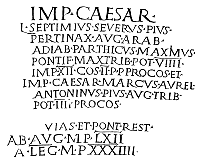 IMP. CAESAR.
L. SEPTIMIVS SEVERVS PIVS.
PERTINAX. AVG. ARAB
ADIAB. PARTHICVS MAXIMVS
PONTIF. MAX. TRIB. POT. VIIII
IMP. XII. COS. II. P. P. PROCOS. ET
IMP. CAESAR. MARCVS. AVREL
ANTONINVS PIVS. AVG. TRIB
POT. IIII. PROCOS.
VIAS. ET. PONT. REST.
AB. AVG. M. P. LXII
A. LEG. M. P. XXXIIII